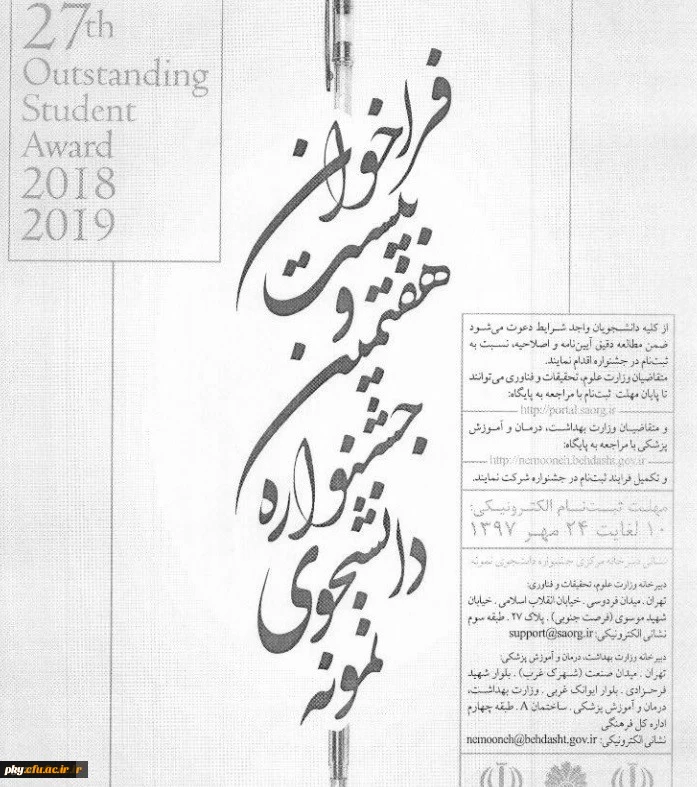 27th
Outstanding
Student
Award
2018
2019
فراخوان
بیست
و
هفتمین
جشنواره
دانشجوی
نمونه
از کلیه دانشـجویان واجد شـرایط دعوت می‌شـود
ضمن مطالعه دقیق آیین‌نامه و اصلاحیه، نسبت به
ثبت‌نام در جشنواره اقدام نمایند.
متقاضیان وزارت علوم، تحقیقات و فناوری می‌توانند
تا پایان مهلت ثبت‌نام با مراجعه به پایگاه:
http://portal.saorg.ir
و متقاضیـان وزارت بهداشـت، درمـان و آمـوزش
پزشکی با مراجعه به پایگاه:
http://nemooneh.behdasht.gov.ir
و تکمیل فرایند ثبت‌نام در جشنواره شرکت نمایند.
مهلـت ثبـت‌نـام الکتـرونیکی:
۱۰ لغایت ۲۴ مهـر ۱۳۹۷
نشانی دبیرخانه مرکزی جشنواره دانشجوی نمونه:
دبیرخانه وزارت علوم، تحقیقات و فناوری:
تهران . میدان فردوسی . خیابان انقلاب اسلامی . خیابان
شهید موسوی (فرصت جنوبی) . پلاک ۲۷ . طبقه سوم
نشانی الکترونیکی: support@saorg.ir
دبیرخانه وزارت بهداشت، درمان و آموزش پزشکی:
تهران . میدان صنعت (شهـرک غرب) . بلوار شهید
فرحـزادی . بلوار ایوانک غربی . وزارت بهداشـت،
درمان و آموزش پزشکی . ساختمان A . طبقه چهارم
اداره کل فرهنگی
نشانی الکترونیکی: nemooneh@behdasht.gov.ir
pky.cfu.ac.ir